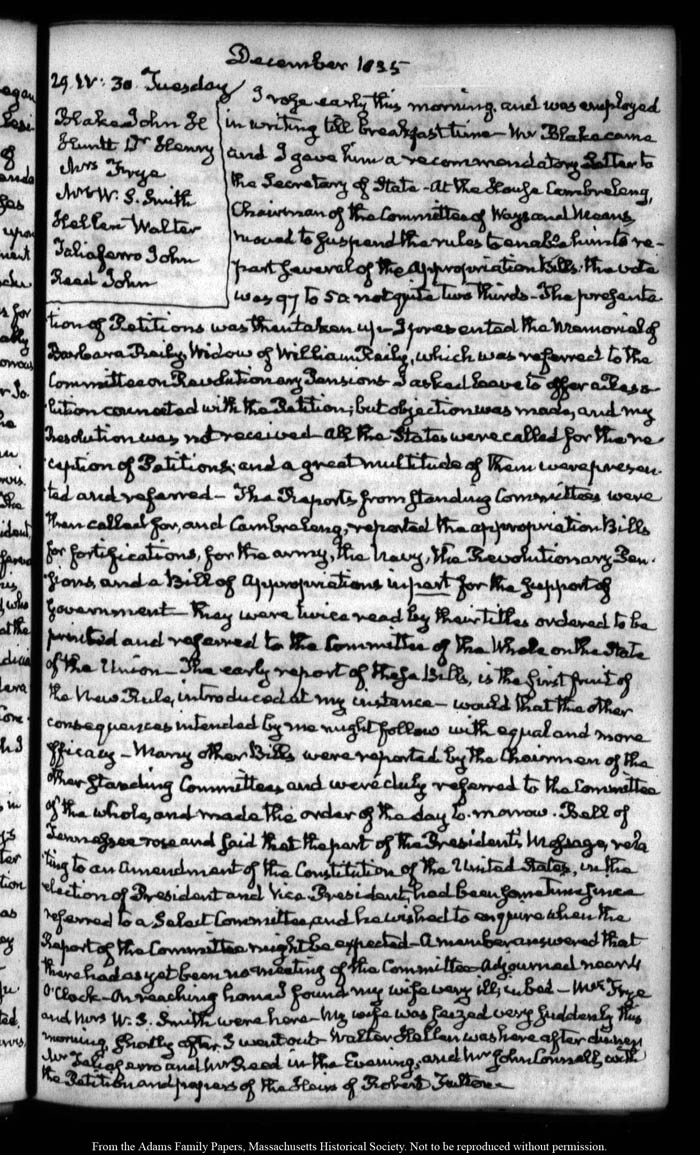 December 1835
29. IV: 30. Tuesday
Blake John H
Huntt Dr Henry
Mrs Frye
Mrs W. S. Smith
Hellen Walter
Taliaferro John
Reed John
I rose early this morning, and was employed
in writing till breakfast time — Mr Blake came
and I gave him a recommendatory Letter to
the Secretary of State — At the House Cambreleng,
Chairman of the Committee of Ways and Means
moved to suspend the rules to enable him to re-
port several of the appropriation bills. the vote
was 97 to 50. not quite two thirds — The presenta
tion of Petitions was then taken up — I presented the Memorial of
Barbara Reily, Widow of William Reily, which was referred to the
Committee on Revolutionary Pensions I asked leave to offer a Reso
lution connected with the Petition; but objection was made, and my
Resolution was not received — All the States were called for the re
ception of Petitions; and a great multitude of them were presen-
ted and referred — The Reports from standing Committees were
then called for, and Cambreleng, reported the appropriation Bills
for fortifications, for the army, the Navy, the Revolutionary Pen-
sions, and a Bill of Appropriations in part for the support of
Government — they were twice read by their titles ordered to be
printed and referred to the Committee of the Whole on the State
of the Union — The early report of these Bills, is the first fruit of
the New Rule, introduced at my instance — would that the other
consequences intended by me might follow with equal and more
efficacy — Many other Bills were reported by the Chairmen of the
other standing Committees, and were duly referred to the Committee
of the whole, and made the order of the day to-morrow. Bell of
Tennessee rose and said that the part of the President's Message, rela
ting to an amendment of the Constitution of the United States, in the
election of President and Vice President, had been some time since
referred to a Select Committee, and he wished to enquire when the
Report of the Committee might be expected — A member answered that
there had as yet been no meeting of the Committee — Adjourned near 4
O'Clock — On reaching home I found my wife very ill, in bed — Mrs Frye
and Mrs W. S. Smith were here — My wife was seized very suddenly this
morning, shortly after I went out — Walter Hellen was here after dinner
Mr Taliaferro and Mr Reed in the Evening, and Mr John Connell, with
the Petition and papers of the Heirs of Robert Fulton —
From the Adams Family Papers, Massachusetts Historical Society. Not to be reproduced without permission.